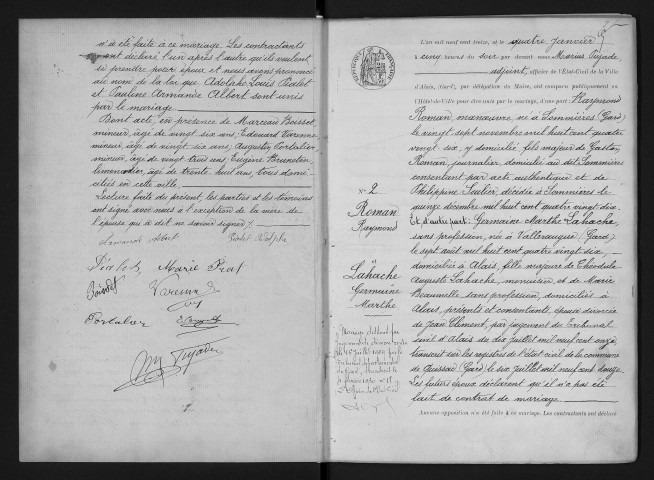 n'a été faite à ce mariage. Les contractants
ont déclaré l'un après l'autre qu'ils veulent
se prendre pour époux et nous avons prononcé
au nom de la loi que Adolphe Louis Pialet
et Pauline Armande Albert sont unis
par le mariage
Dont acte, en présence de Marceau Boisset
mineur, âgé de vingt six ans, Edouard Varenne
mineur, âgé de vingt six ans, Augustin Portalier
mineur, âgé de vingt trois ans, Eugène Brunelin
limonadier, âgé de trente huit ans, tous domi-
ciliés en cette ville.
Lecture faite du présent, les parties et les témoins
ont signé avec nous à l'exception de la mère de
l'épouse qui a dit ne savoir signer
Albert Pialet Adolphe
Pialet, Marie Prat
Boisset Varenne
Portalier
M. Pujade
L'an mil neuf cent treize, et le quatre Janvier
à cinq heures du soir par devant nous Marius Pujade,
adjoint, officier de l'État-Civil de la Ville
d'Alais, (Gard), par délégation du Maire, ont comparu publiquement en
l'Hôtel-de-Ville pour être unis par le mariage, d'une part: Raymond
Roman manœuvre, né à Sommières (Gard)
le vingt sept novembre mil huit cent quatre
vingt six, y domicilié, fils majeur de Gaston
Roman journalier domicilié au dit Sommières
consentant par acte authentique et de
Philippine Sautier, décédée à Sommières le
quinze décembre mil huit cent quatre vingt dix.
Et d'autre part: Germaine Marthe Lahache
sans profession, née à Valleraugue (Gard)
le sept août mil huit cent quatre vingt dix,
domiciliée à Alais, fille majeure de Théodule
Auguste Lahache, menuisier et de Marie
Beaumelle sans profession, domiciliés à
Alais, présents et consentants, épouse divorcée
de Jean Climent, par jugement du Tribunal
civil d'Alais du dix Juillet mil neuf cent onze
transcrit sur les registres de l'état civil de la commune
de Quissac (Gard) le six Juillet mil neuf cent douze.
Les futurs époux déclarent qu'il n'a pas été
fait de contrat de mariage.
Aucune opposition n'a été faite à ce mariage. Les contractants ont déclaré
N° 2
Roman
Raymond
et
Lahache
Germaine
Marthe
Mariage dissout par